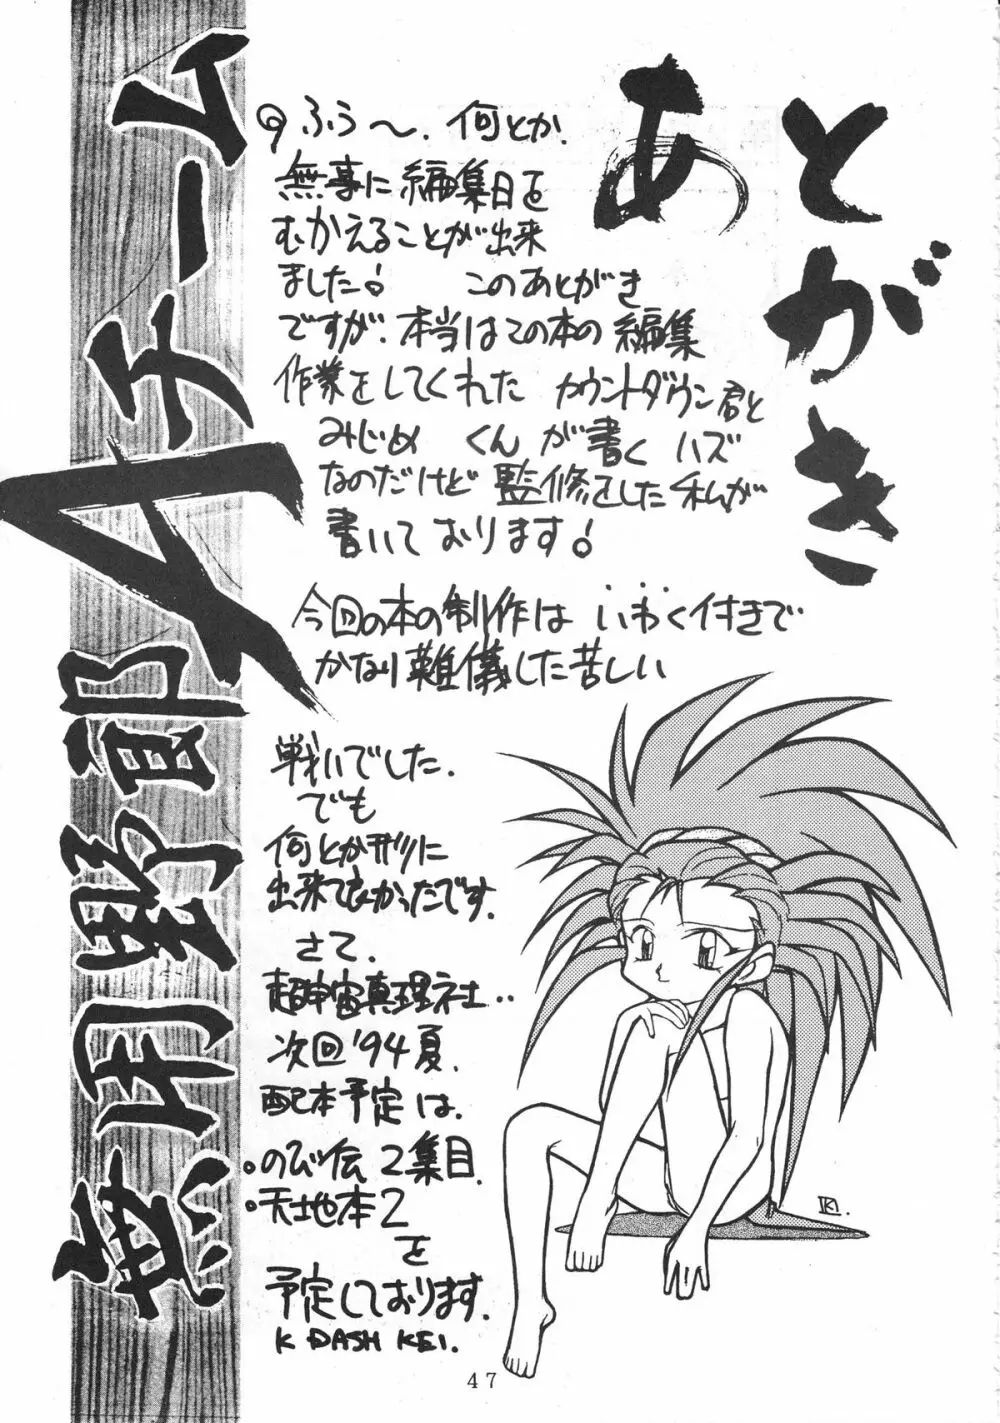 あとがき
ふぅ〜. 何とか.
無事に編集日を
むかえることが出来
ました! このあとがき
ですが. 本当はこの本の編集
作業をしてくれた カウントダウン君と
みじめ くん が書く ハズ
なのだけど 監修をした私が
書いております!
今回の本の制作は いわく付きで
かなり難儀した苦しい
戦いでした.
でも
何とか形に
出来て良かったです.
さて.
超宇宙真理社..
次回 '94 夏.
配本予定 は.
・のび伝 2集目.
・天地本2
を
予定しております.
K DASH KEI.
熱用野郎Aチーム
K.
47